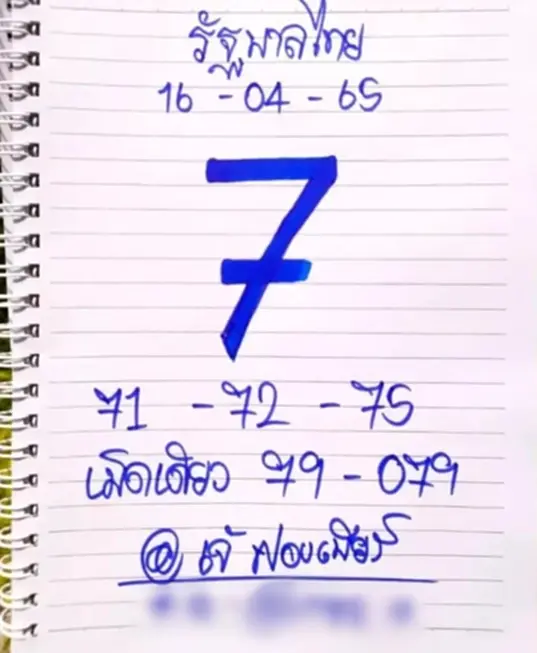 รัฐบาลไทย
16 - 04 - 65
7
71 - 72 - 75
เม็ดเดียว 79 - 079
@ เจ๊ฟองเบียร์